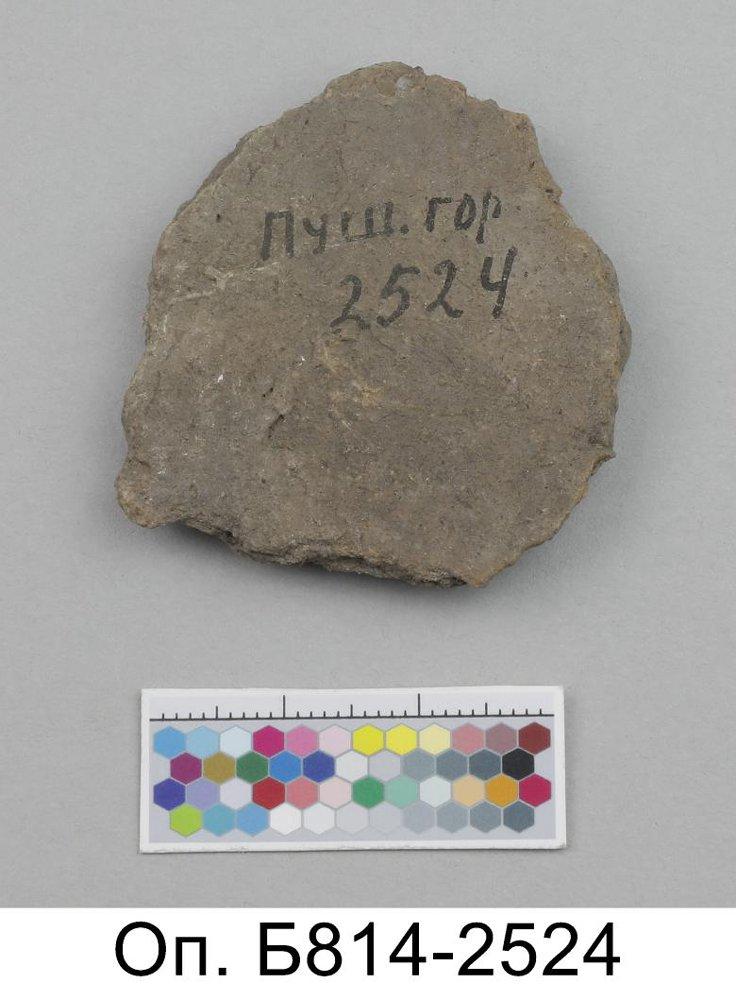 Пуш. гор
2524
Оп. Б814-2524